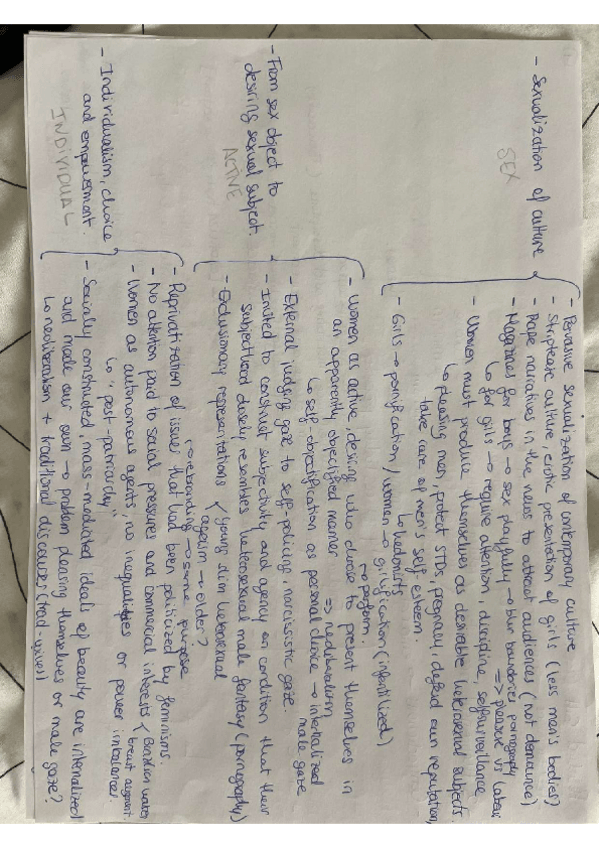 - Sexualization of culture
SEX
- Pervasive sexualization of contemporary culture
- Striptease culture, erotic presentation of girls (less men's bodies)
- Rape narratives in the news to attract audiences (not denounce)
- Magazines for boys → sex playfully → blur boundaries pornography
↳ for girls → require attention, discipline, selfsurveillance
=> pleasure vs labour
- Women must produce themselves as desirable heterosexual subjects.
↳ pleasing men, protect STDs, pregnancy, defend own reputation,
take care of men's self-esteem.
↳ hedonists
- Girls → pornification / women → girlification (infantilized)
→ perform
- From sex object to
desiring sexual subject.
ACTIVE
- Women as active, desiring who choose to present themselves in
an apparently objectified manner => neoliberalism
↳ self-objectification as personal choice → internalized
male gaze
- External judging gaze to self-policing, narcissistic gaze.
- Invited to construct subjectivity and agency on condition that their
subjecthood closely resembles heterosexual male fantasy (pornography)
- Exclusionary representations { young slim heterosexual
ageism → older?
- Individualism, choice
and empowerment.
INDIVIDUAL
→ rebranding → same purpose
- Reprivatization of issues that had been politicized by feminisms.
- No attention paid to social pressures and commercial interests { Brazilian waxes
breast augment.
- Women as autonomous agents, no inequalities or power imbalances.
↳ "post-patriarchy"
- Socially constructed, mass-mediated ideals of beauty are internalized
and made our own → problem pleasing themselves or male gaze?
↳ neoliberalism + traditional discourses (trad-wives)